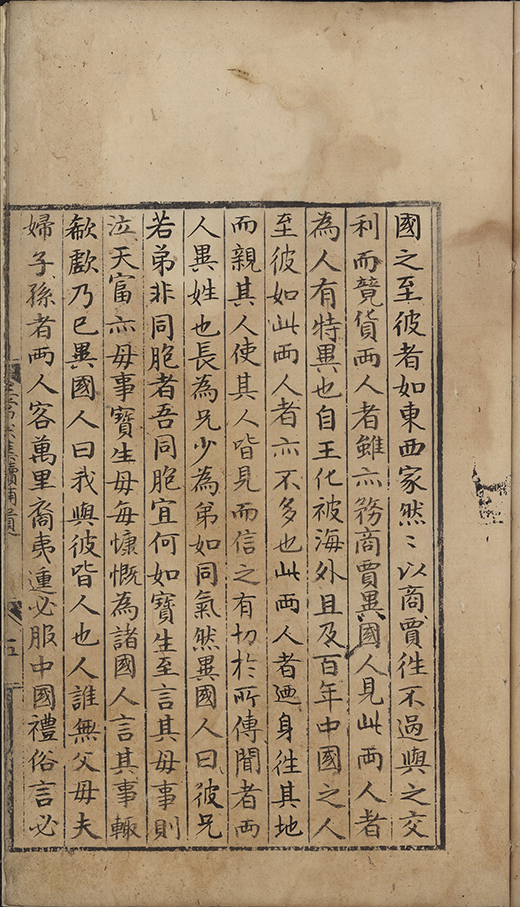 國之至彼者如東西家然〻以商賈徃不過與之交
利而競貨两人者雖亦務商賈異國人見此两人者
為人有特異也自王化被海外且及百年中國之人
至彼如此两人者亦不多也此两人者廼身徃其地
而親其人使其人皆見而信之有切於所傳聞者两
人異姓也長為兄少為弟如同氣然異國人曰彼兄
若弟非同胞者吾同胞宜何如寶生至言其母事則
泣天富亦母事寶生母每慷慨為諸國人言其事輙
欷歔乃已異國人曰我與彼皆人也人誰無父母夫
婦子孫者两人客萬里裔夷連必服中國禮俗言必